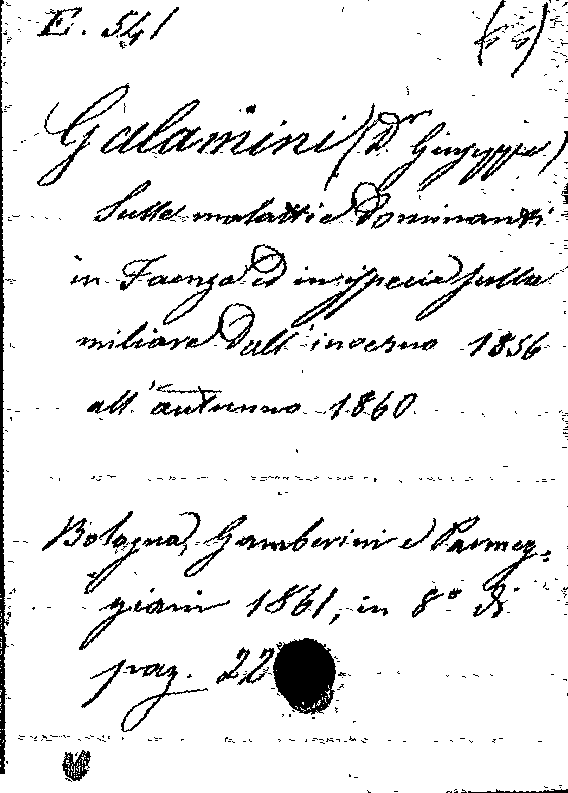 E. 541
Galamini (Dr Giuseppe)
Sulle malattie dominanti
in Faenza ed in ispecie sulla
miliare dall'inverno 1856
all'autunno 1860
Bologna, Gamberini e Parmeg-
giani 1861, in 8° di
pag. 22